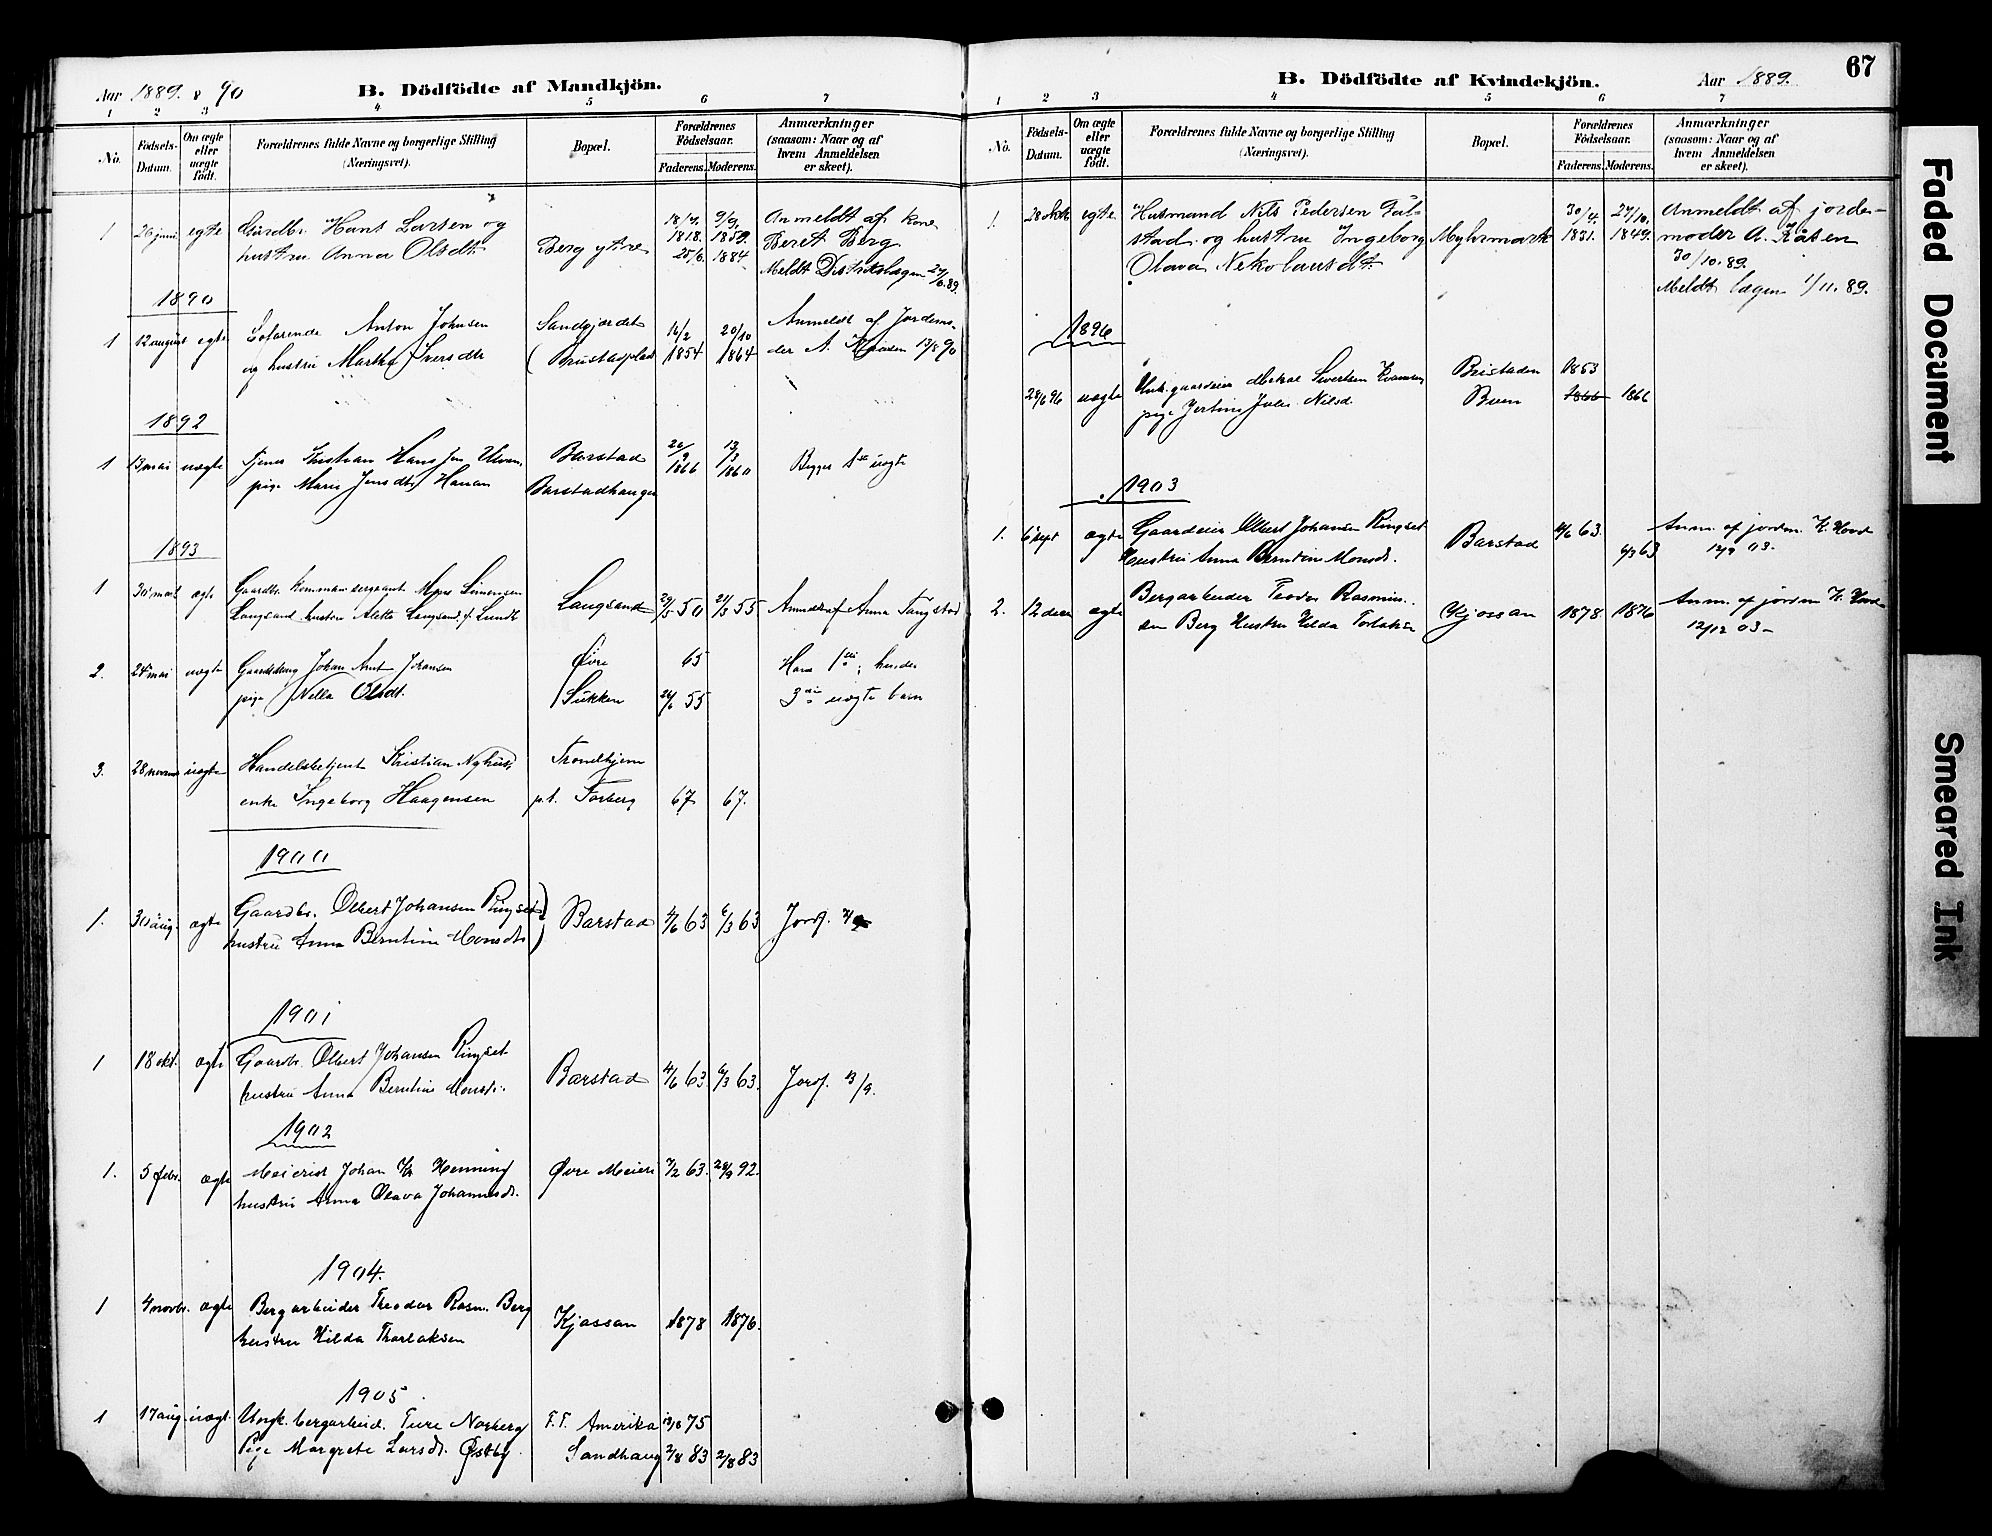 Aar 1889. & 90
B. Dödfödte af Mandkjön.
1 2 3 4 5 6 7
No.
Födsels-Datum.
Om ægte eller uægte födt.
Forældrenes fulde Navne og borgerlige Stilling (Næringsvei).
Bopæl.
Forældrenes Födselsaar.
Faderens. Moderens.
Anmærkninger (saasom: Naar og af hvem Anmeldelsen er skeet).
1 26 juni egte Gårdbr. Hans Larsen og Berg ytre 18/4. 1818. 9/9. 1859. Anmeldt af kone
hustru Anna Olsdt 25/6. 1884 Beret Berg
Meldt Distriktslægen 27/6.89.
1890
1 12 august egte Anton Johnsen Sandgjerdet 16/2 1854 20/10 1864 Anmeldt af Jordemo-
og hustru Martha Iversdtr der A. 13/8 90
1892
1 13 mai uægte Kristian Hansen Barstad 26/9 1866 13/3 1860 Begges 1ste uægte
pige Marie Jensdtr Hanan Barstadhaugen
1893
1 30 mars ægte Gaardbr. Simonsen Langsand 29/5 50 21/3 55 Anmeldt af Anna Tangstad
Langsand hustru Aletta Langsand f. Lundt
2. 24 mai uægte Johan Johansen Øvre 65 Hans 1ste; hendes
pige Nella Olsdt. Sukken 24/6 55 3die uægte barn
3. 28 novem uægte Handelsbetjent Kristian Nyhus, Trondhjem
enke Ingeborg Haagensen p.t. Forberg 67 67.
1900
1. 30 aug. ægte Gaardbr. Olbert Johansen Ringset Barstad 4/6 63 6/3 63 Jord.
hustru Anna Berntine Monsdtr
1901
1 18 okt. ægte Gaardbr. Olbert Johansen Ringset Barstad 4/6 63. 6/3 63. Jord. 13/9.
hustru Anna Berntine Monsdtr.
1902
1. 5 febr. ægte Meierist Johan Henning Øvre Meieri 7/2 63. 28/9 92.
hustru Anna Olava Johannesdt.
1904.
1 4 novbr. ægte Bergarbeider Theodor Rasm. Berg Kjøssan 1878 1876.
hustru Hilda Thorlaksen
1905
1 17 aug. uægt. Ungk. bergarbeid. Ture Norberg F.T. Amerika 13/8 75
Pige Margrete Larsdt. Østby. Sandhaug 2/8 83 2/8 83
67
B. Dödfödte af Kvindekjön.
Aar 1889.
1 2 3 4 5 6 7
No.
Födsels-Datum.
Om ægte eller uægte födt.
Forældrenes fulde Navne og borgerlige Stilling (Næringsvei).
Bopæl.
Forældrenes Födselsaar.
Faderens. Moderens.
Anmærkninger (saasom: Naar og af hvem Anmeldelsen er skeet).
1. 28 oktb egte Husmand Nils Pedersen Myhrmark 30/4 1831. 27/10. 1849. Anmeldt af jorde-
stad og hustru Ingeborg moder A. Råsen
Olava Nikolausdt. 30/10.89.
Meldt lægen 1/11.89.
1896
28/6 96 uægte Ungk. gaardeier Sivertsen Bristaden 1863
pige Jertine Julie Nilsd. Buen 1866 1866
1903
1. 6 sept ægte Gaardeier Olbert Johansen Ringset Barstad 4/6 63. 6/3 63 Anm. af jordm. K. Hovd
Hustru Anna Berntine Monsdt. 12/9 03.
2. 12 decm ægte Bergarbeider Teodor Rasmus- Kjøssan 1878. 1876 Anm. af jordm K. Hovd
sen Berg Hustru Hilda Torlaksen 12/12 03
Faded Document
Smeared Ink